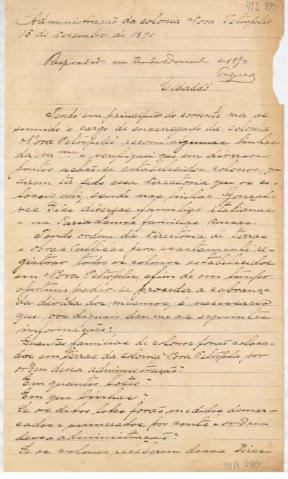 Administração da colonia Nova Petropolis
16 de dezembro de 1890.
Respondido em
1890
Cidadão
Tendo em principio do corrente mez as
sumido o cargo de encarregado da colonia
Nova Petropolis, percorri algumas linhas
da m e verifiquei que em diversos
pontos achão-se estabelecidos colonos, que
me
diversas familias italianas
e familias
Tendo ordem da Directoria de terras
e para exactamente re
gistrar todos os colonos estabelecidos
em Nova Petropolis, afim de em tempo
opportuno poder-se proceder a cobrança
da divida dos mesmos, é necessario
que vos digneis dar-me as seguintes
informações:
Quantas familias de colonos forão colloca
dos em terras da colonia Nova Petropolis, por
ordem dessa administração?
Em quantos lotes?
Em que linhas?
Se os ditos lotes forão medidos, demar
cados e numerados por conta e ordem
dessa administração?
Se os colonos receberão dessa Direc